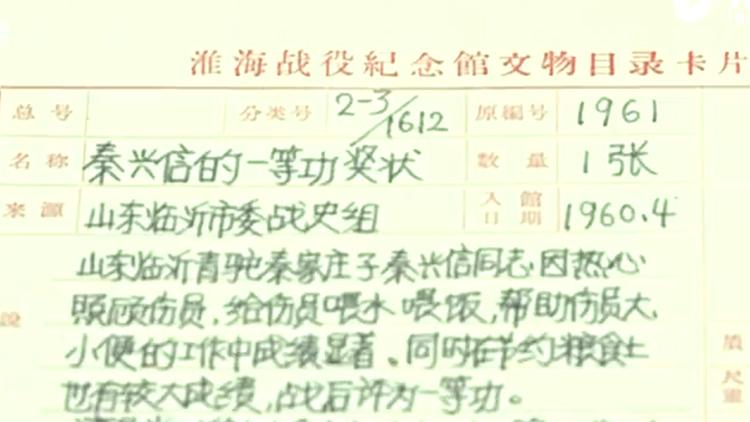 淮海战役紀念館文物目录卡片
总号 分类号 2-3/1612 原編号 1961
名称 秦兴信的一等功奖状 数量 1张
来源 山东临沂市委战史组 入館日期 1960.4
山东临沂青驼秦家庄子秦兴信同志,因热心
照顾伤员,给伤员喂水喂饭,帮助伤员大、
小便的工作中成绩显著。同时在节约粮食上
也有较大成绩,战后评为一等功。
說
质
尺
重